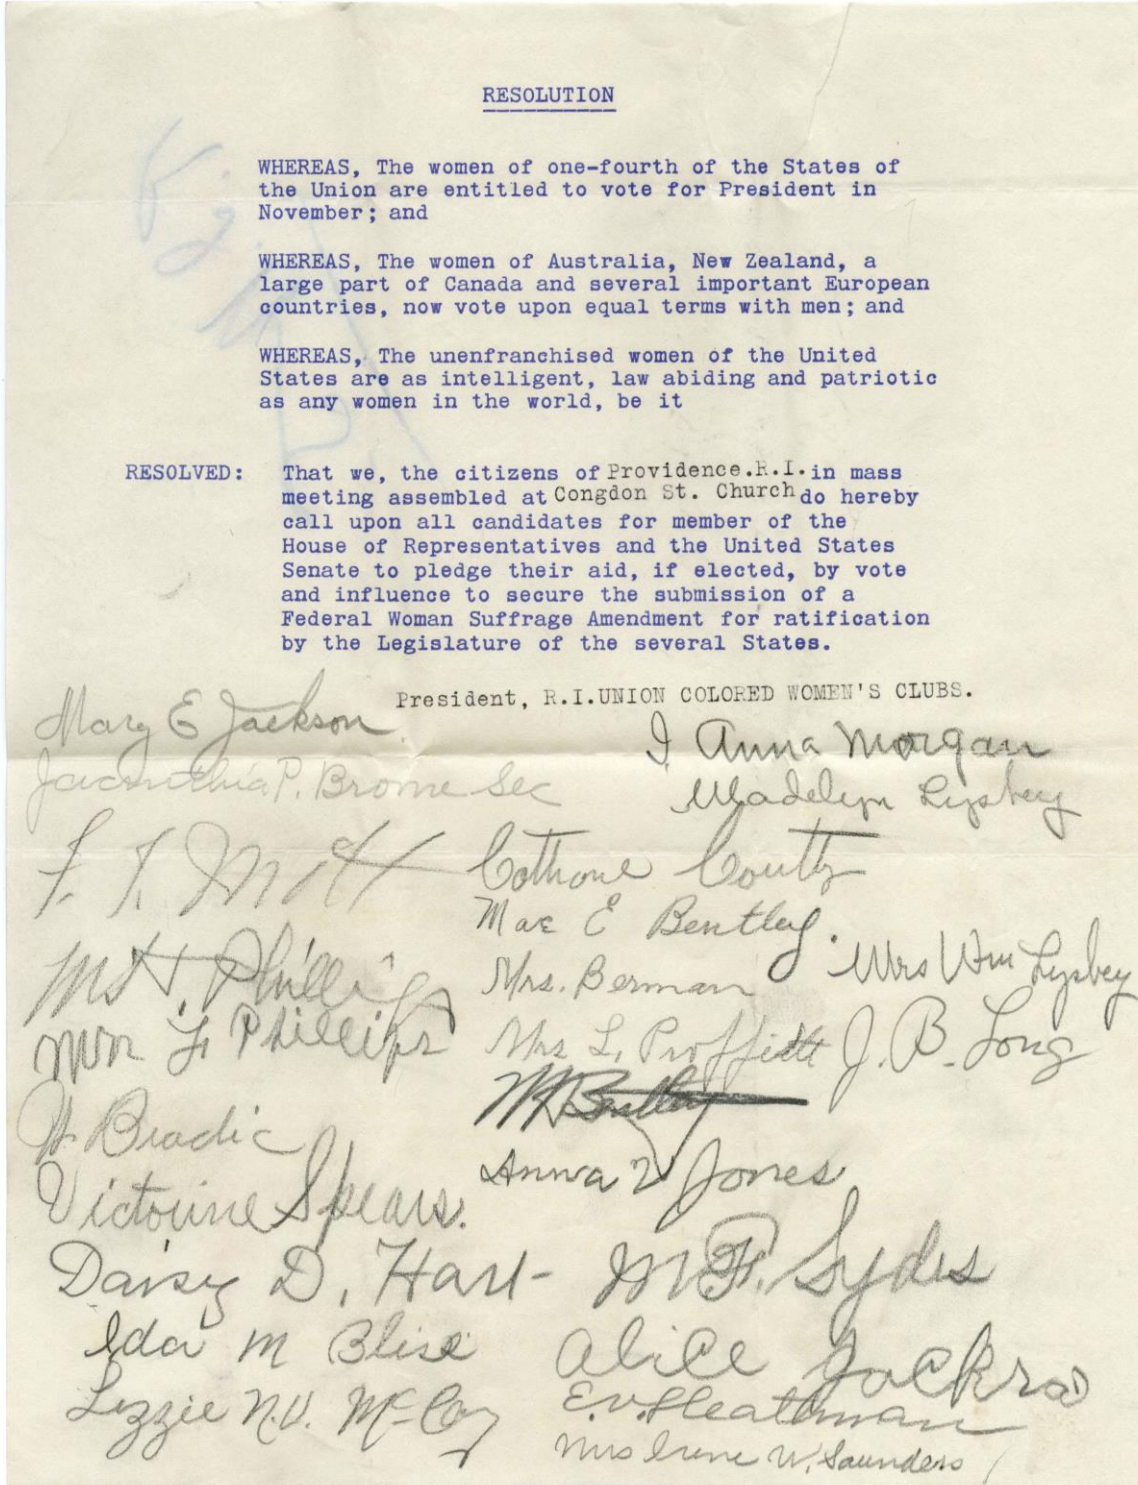 RESOLUTION
WHEREAS, The women of one-fourth of the States of
the Union are entitled to vote for President in
November; and
WHEREAS, The women of Australia, New Zealand, a
large part of Canada and several important European
countries, now vote upon equal terms with men; and
WHEREAS, The unenfranchised women of the United
States are as intelligent, law abiding and patriotic
as any women in the world, be it
RESOLVED: That we, the citizens of Providence.R.I. in mass
meeting assembled at Congdon St. Church do hereby
call upon all candidates for member of the
House of Representatives and the United States
Senate to pledge their aid, if elected, by vote
and influence to secure the submission of a
Federal Woman Suffrage Amendment for ratification
by the Legislature of the several States.
President, R.I.UNION COLORED WOMEN'S CLUBS.
Mary E Jackson
P. Brome Sec
F. T. Mitt
H. Phillips
Wm F. Phillips
Bradic
Victorine Spears.
Daisy D. Hart
Ida M Blise
Lizzie N.V. McCoy
I Anna Morgan
Madelyn Lysbey
Coutz
Mae E Bentley.
Mrs. Berman
Mrs Wm Lysbey
Mrs L. Proffitt
J. B. Long
Bentley
Anna V Jones
M F. Sydes
Alice Jackson
E.V. Heathman
Mrs Irene W. Saunders